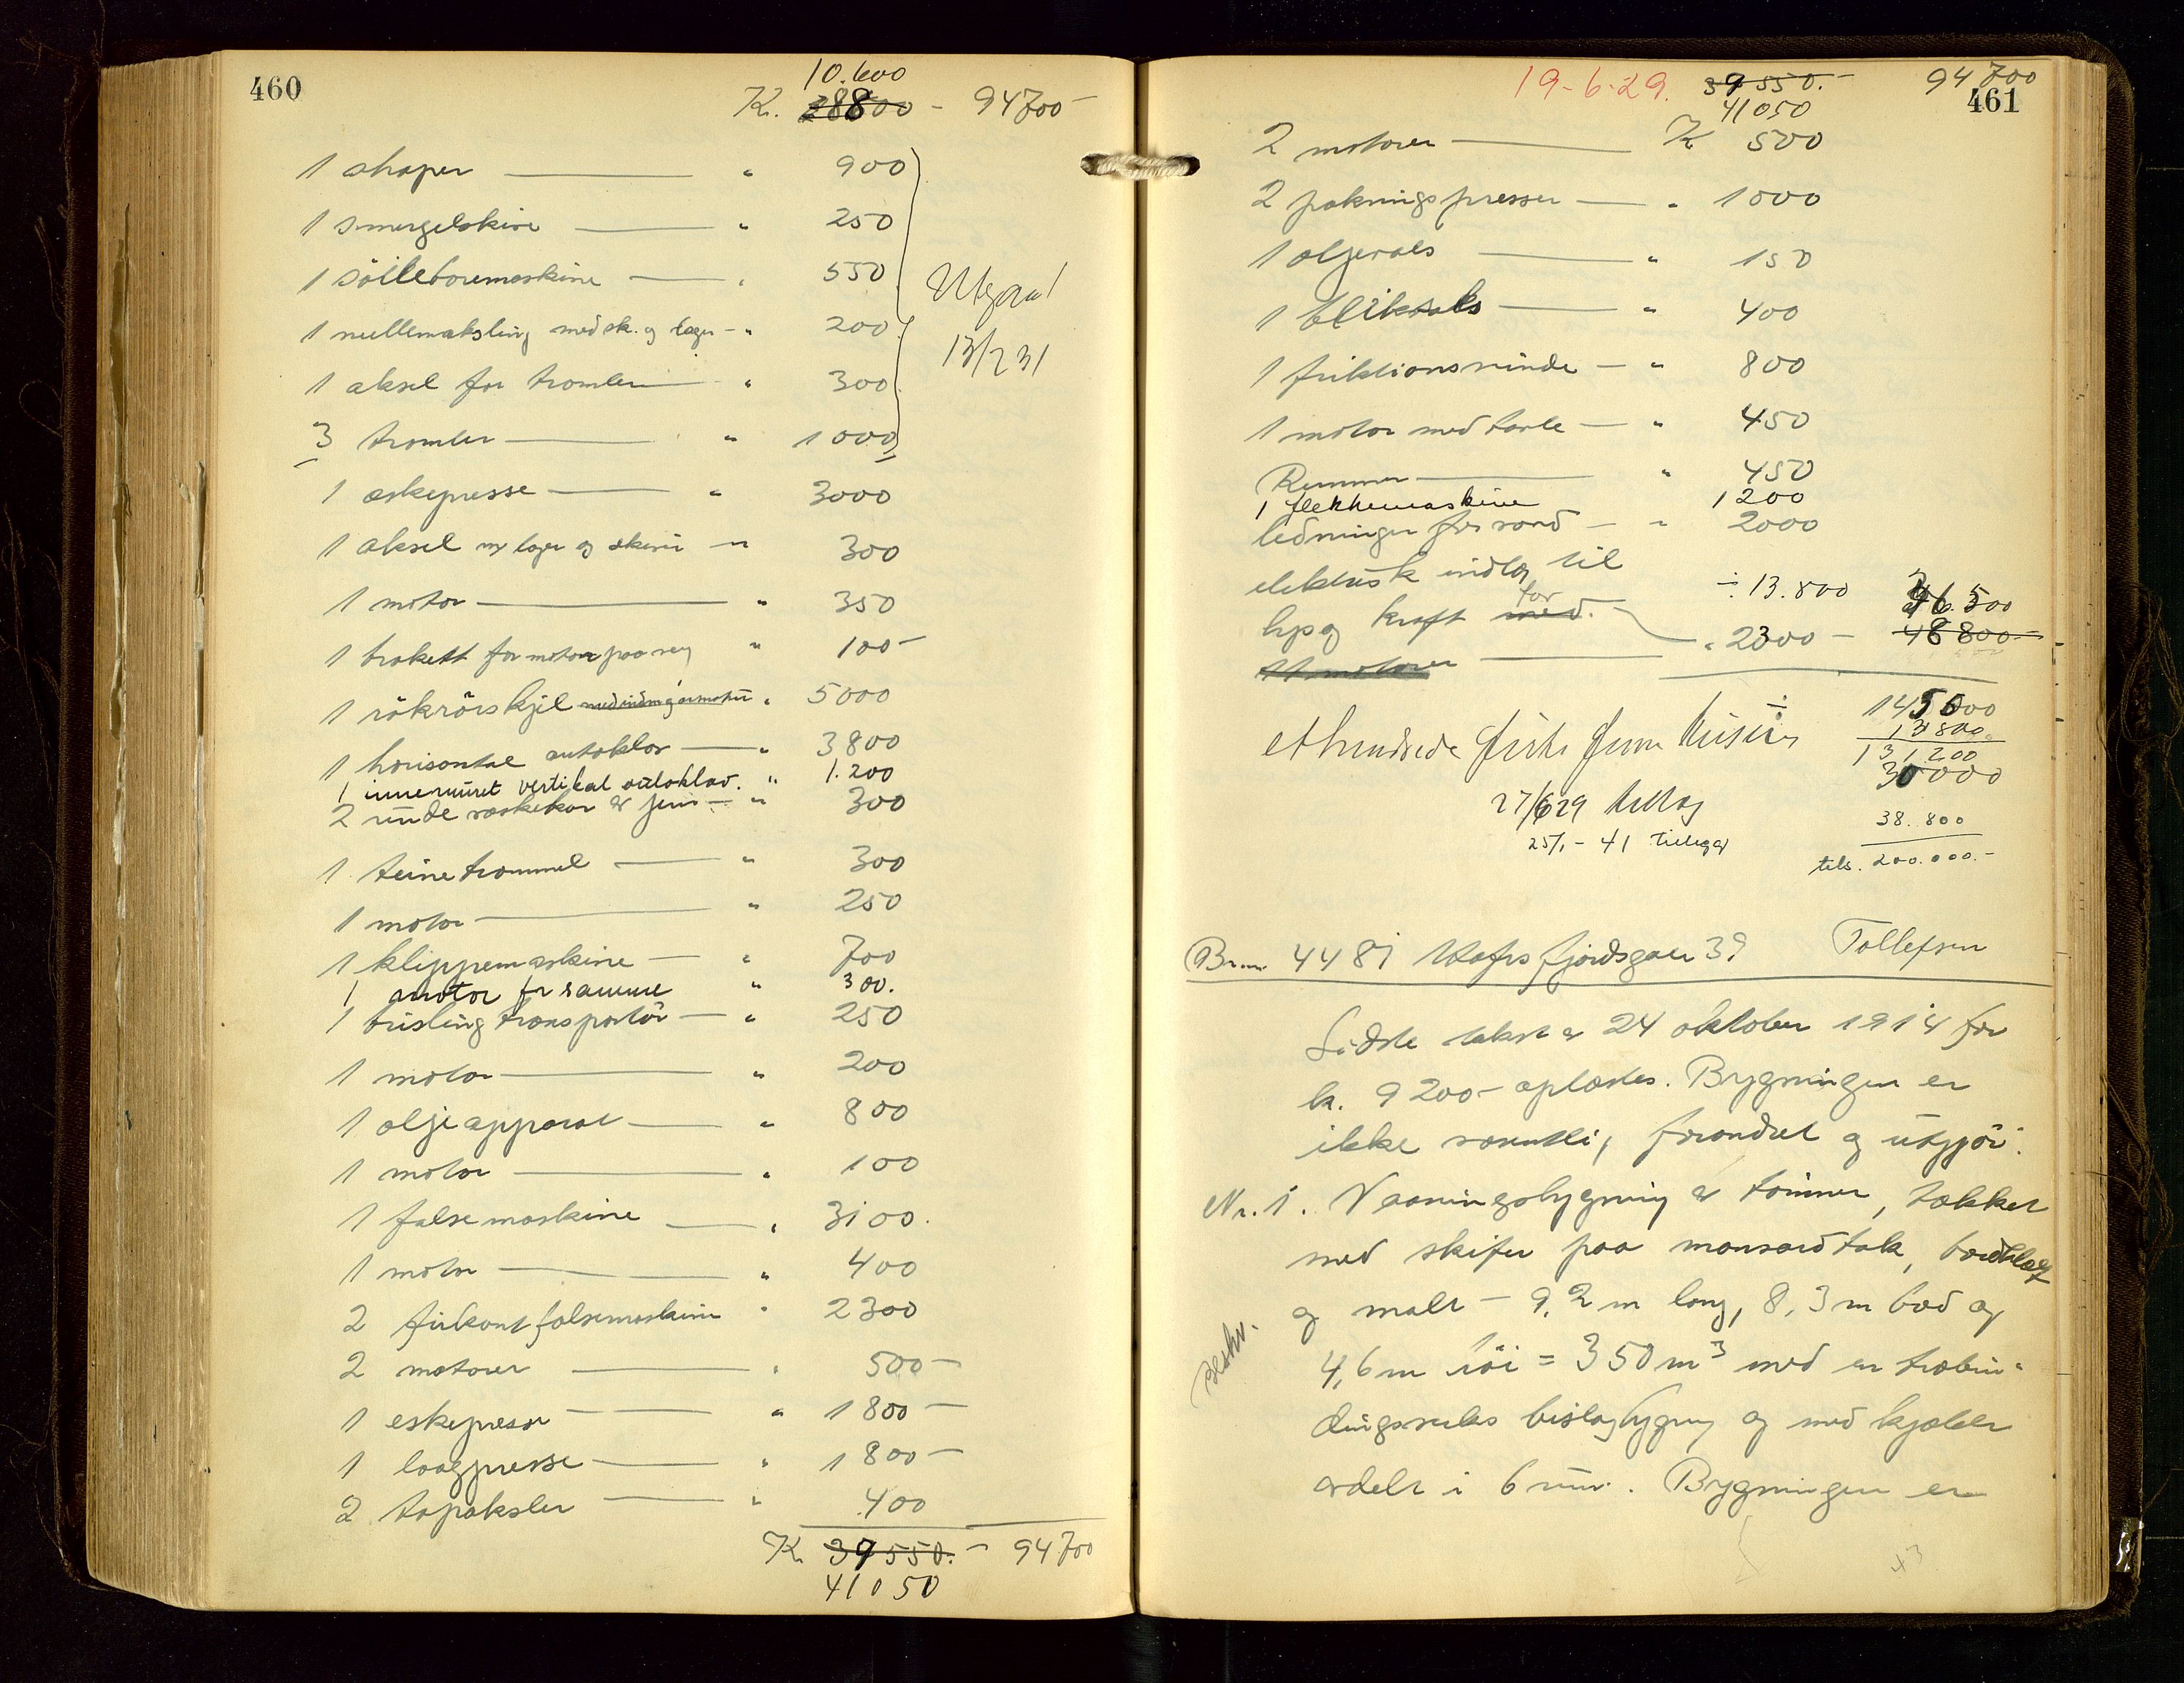 460
10.600
K. 28800 - 94700-
1 shaper — " 900
1 smergelskive — " 250
1 söileboremaskine — " 550
1 mellemaksling med sk. og lager — " 200
1 aksel for tromler — " 300
3 tromler — " 1000
Utgaar
13/2 31
1 eskepresse — " 3000
1 aksel m/ lager og skiver — " 300
1 motor — " 350
1 brakett for motor paa væg " 100-
1 rökrörskjel med indm. og armatur " 5000
1 horisontal autoklav — " 3800
1 innemuret vertikal autoklav. " 1.200
2 runde vaskekar av jern — " 300
1 teinetrommel — " 300
1 motor — " 250
1 klippemaskine — " 700
1 motor for samme " 300.
1 brisling transportör — " 250
1 motor — " 200
1 oljeapparat — " 800
1 motor — " 100
1 falsemaskine — " 3100.
1 motor — " 400
2 firkant falsemaskiner " 2300
2 motorer — " 500-
1 eskepresse — " 1800-
1 laagpresse — " 1800-
2 topaksler — " 400
K. 39550.- 94700
41050
461
19-6-29. 39550.- 94700
41050
2 motorer — K 500
2 pakningspresser — " 1000
1 oljevals — " 150
1 bliksaks — " 400
1 friktionsvinde — " 800
1 motor med tavle — " 450
Remmer — " 450
1 flekkemaskine 1200
ledninger for vand — " 2000
elektrisk indlæg til
÷ 13.800 46.500
lys og kraft med. for " 2300 - 48800-
11 motorer
÷ 145000
13800
ethundrede firti fem tusen 131200
30000
27/6 29 tillæg
38.800
25/1 - 41 tillegg
tils. 200.000.-
Br.nr. 448i Hafrsfjordsgaten 39 Tollefsen
Sidste takst av 24 oktober 1914 for
k. 9200- oplæstes. Bygningen er
ikke væsentlig forandret og utgjör:
Nr. 1. Vaaningsbygning av tömmer, tækket
med skifer paa mansardtak, bordklæd
og malt - 9,2 m lang, 8,3 m bred og
Beskr.
4,6 m höi = 350 m³ med en træbin-
dingsverks bislagbygning og med kjelder
avdelt i 6 rum. Bygningen er
43